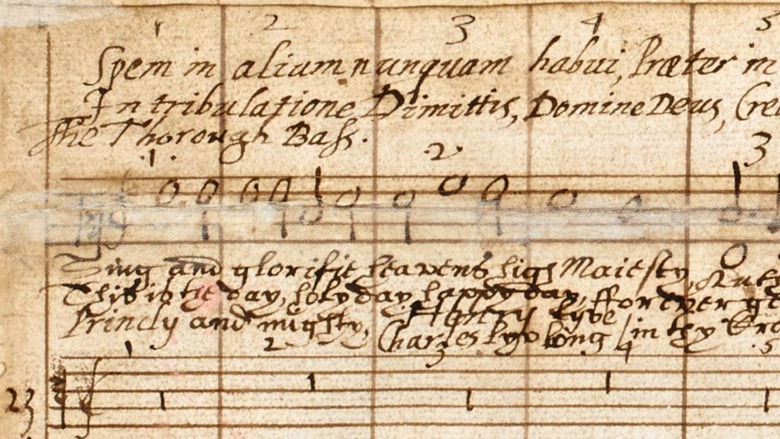 1 2 3 4 5
Spem in alium nunquam habui, Præter in
In tribulatione Dimittis, Domine Deus, Cre
The Thorough Bass.
1 2 3
Sing and glorifie heavens high Maiesty,
This is the day, holy day, happy day, ffor ever
Princly and mighty, Henry lyve
Charles lyve long in thy
1 2 3 4 5
23